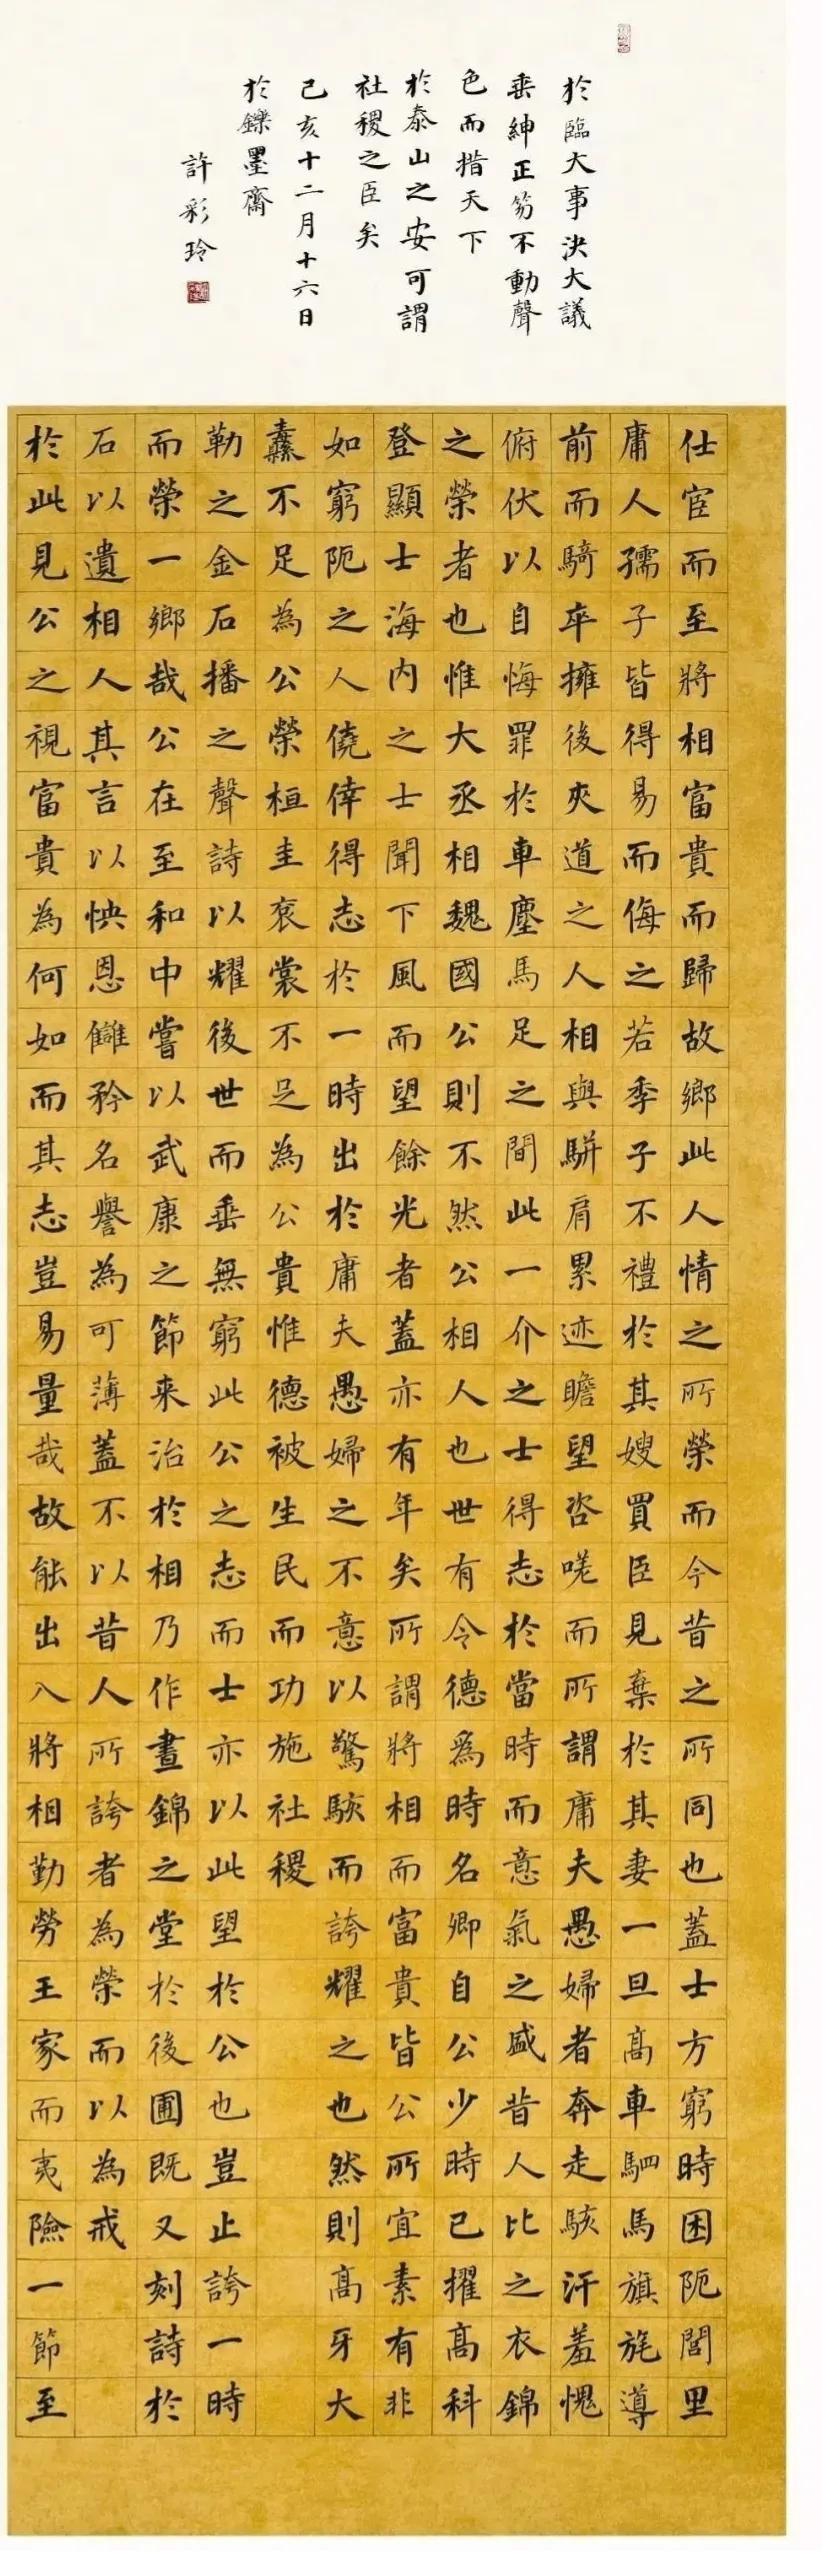 仕宦而至將相富貴而歸故鄉此人情之所榮而今昔之所同也蓋士方窮時困阨閭里
庸人孺子皆得易而侮之若季子不禮於其嫂買臣見棄於其妻一旦高車駟馬旗旄導
前而騎卒擁後夾道之人相與駢肩累迹瞻望咨嗟而所謂庸夫愚婦者奔走駭汗羞愧
俯伏以自悔罪於車塵馬足之間此一介之士得志於當時而意氣之盛昔人比之衣錦
之榮者也惟大丞相魏國公則不然公相人也世有令德為時名卿自公少時已擢高科
登顯士海內之士聞下風而望餘光者蓋亦有年矣所謂將相而富貴皆公所宜素有非
如窮阨之人僥倖得志於一時出於庸夫愚婦之不意以驚駭而誇耀之也然則高牙大
纛不足為公榮桓圭袞裳不足為公貴惟德被生民而功施社稷
勒之金石播之聲詩以耀後世而垂無窮此公之志而士亦以此望於公也豈止誇一時
而榮一鄉哉公在至和中嘗以武康之節来治於相乃作晝錦之堂於後圃既又刻詩於
石以遺相人其言以快恩讎矜名譽為可薄蓋不以昔人所誇者為榮而以為戒
於此見公之視富貴為何如而其志豈易量哉故能出入將相勤勞王家而夷險一節至
於臨大事決大議
垂紳正笏不動聲
色而措天下
於泰山之安可謂
社稷之臣矣
己亥十二月十六日
於鑠墨齋
許彩玲